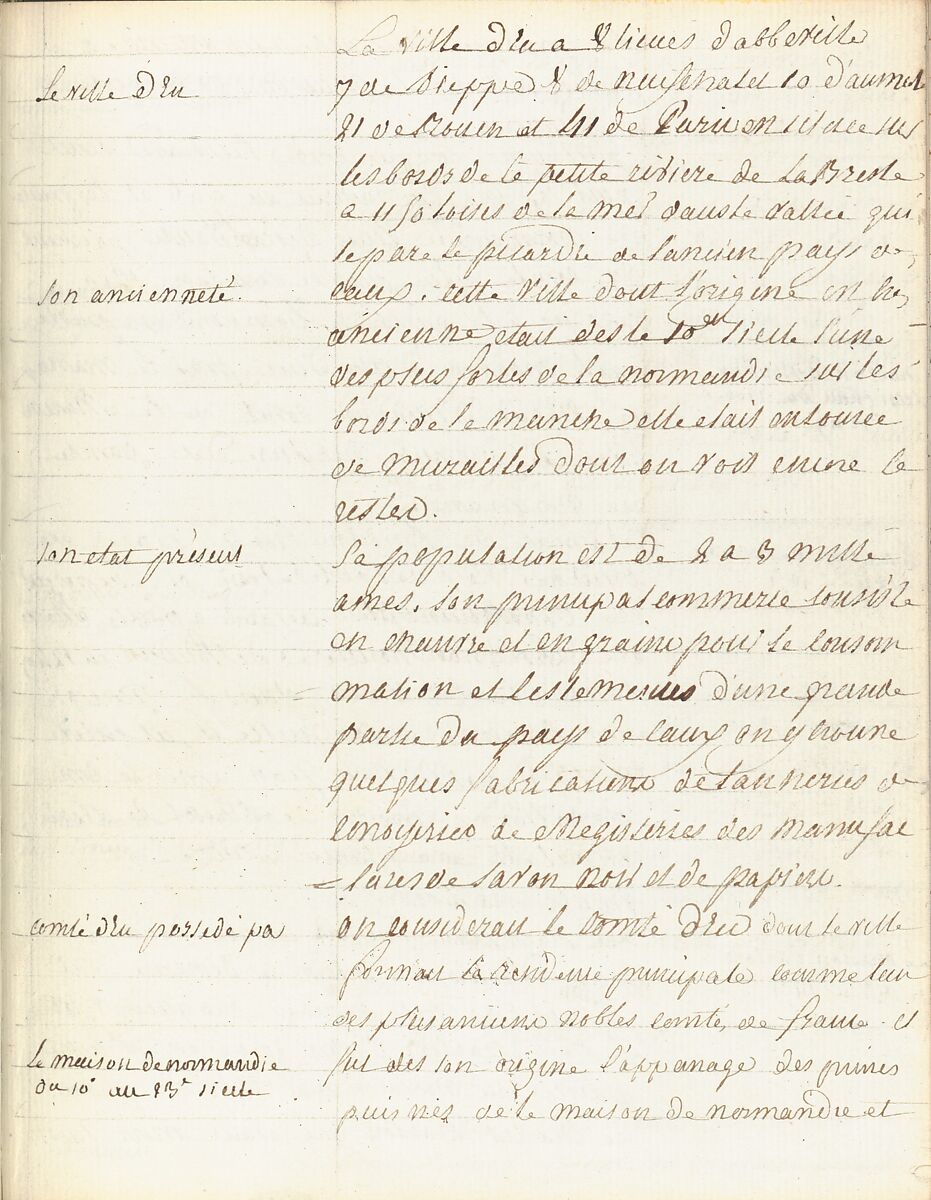 La ville d'Eu a 8 lieues d'abbeville
Le ville d'Eu
7 de Dieppe 8 de neufchatel 10 d'aumal
21 de Rouen et 41 de Paris en située sur
les bords de le petite riviere de La Bresle
a 1150 toises de la mer dans le vallée qui
separe le picardie de l'ancien pays de
son ancienneté.
caux. cette ville dont l'origine en tres
ancienne etait des le 10eme siecle l'une
des plus fortes de la normandie sur les
bords de le manche elle etait entouree
de murailles dont on voit encore le
restes.
son etat présent
Sa population est de 2 a 3 mille
ames. son principal commerce consiste
en chanvre et en graine pour le consom
mation et les semences d'une grande
partie du pays de caux on y trouve
quelques fabrications de tanneries de
de Megisseries des manufac
=tures de savon noir et de papier.
comté d'Eu possedé pa
on considerait le comté d'Eu dont le ville
formait le residence principale comme l'un
des plus anciens nobles comtés de france. et
Le maison de normandie
du 10e au 13e siecle
fut des son origine l'appanage des princes
puis nés de le maison de normandie et